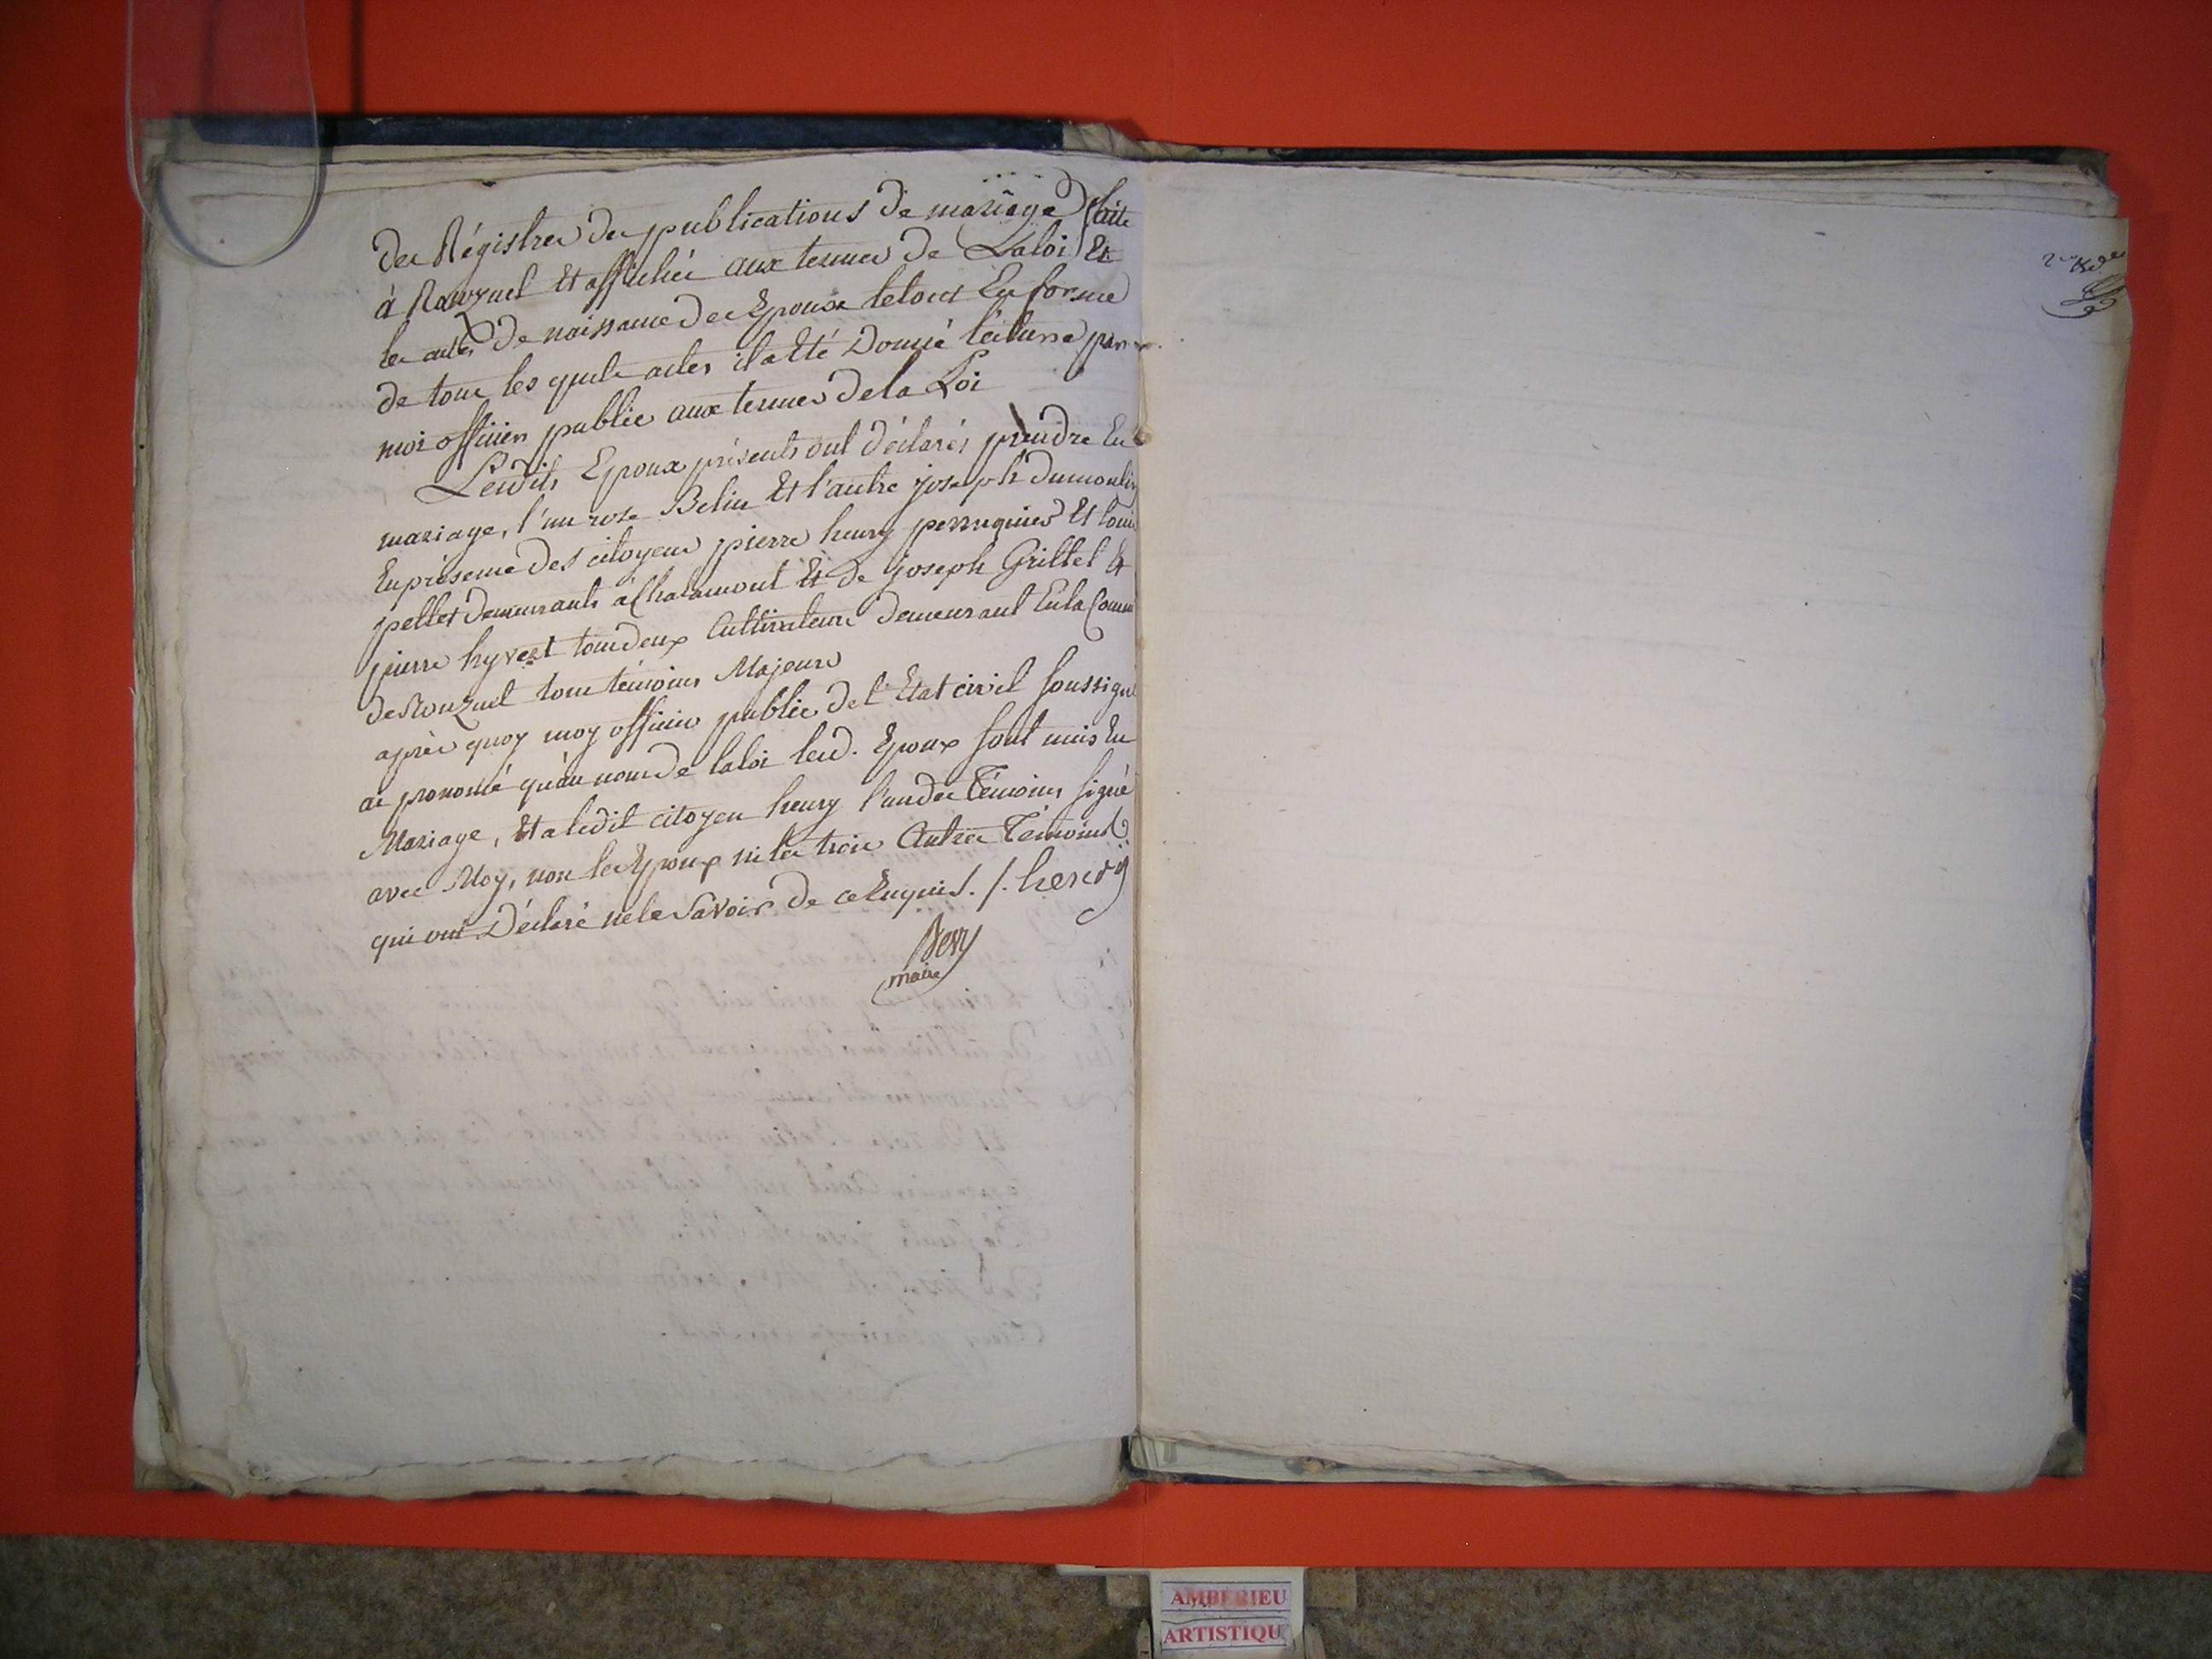 des Régistres des publications de mariage faite
à Ronzuel Et affichée aux termes de Laloi Et
les actes de naissance des Epoux letout En forme
de tous les quels actes ila Eté Donné lecture par
moi officier public aux termes dela Loi
Lesdits Epoux présents ont déclarés prendre En
mariage, l'un rose Belin Et l'autre joseph dumoulin
En présence des citoyens pierre henry perruquier Et louis
pellet demeurants à Chalamont Et de joseph Grillet &
pierre hyvert tous deux Cultivateurs demeurant En la Commu
de Ronzuel tous témoins Majeurs
après quoy moy officier public del'Etat civil soussigné
ai prononcé qu'au nom de laloi lesd. Epoux sont unis En
Mariage, Et a ledit citoyen henry l'un des Témoins signé
avec Moy, non les Epoux ni les trois Autres Témoins
qui ont Déclaré nele Savoir de ce Enquis. /. henry
maire
AMBERIEU
ARTISTIQU